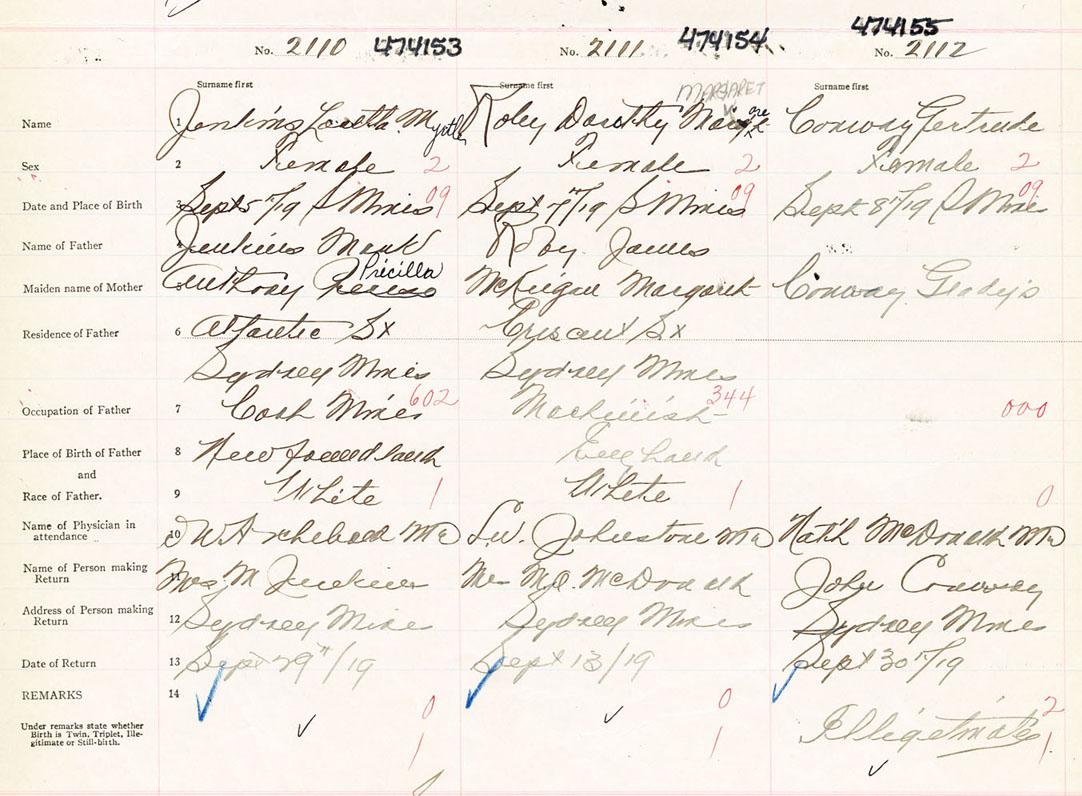 474155
No. 2110 474153 No. 2111 474154 No. 2112
Surname first Surname first MARGARET Surname first
Name 1 Jenkins Loretta Myrtle Roby Dorothy Conway Gertrude
Sex 2 Female 2 Female 2 Female 2
Date and Place of Birth 3 Sept 5"/19 S Mines 09 Sept 7"/19 S Mines 09 Sept 8"/19 S Mines 09
Name of Father 4 Jenkins Mark Roby James
Priscilla
Maiden name of Mother Anthony McKeigan Margaret Conway Gladys
Residence of Father 6 Atlantic St Crescent St
Sydney Mines Sydney Mines
Occupation of Father 7 Coal Miner 602 Machinist 344 000
Place of Birth of Father 8 Newfoundland England
and
Race of Father. 9 White 1 White 1 0
Name of Physician in 10 Archibald MD Johnstone MD Nat'l McDonald MD
attendance
Name of Person making 11 Mrs M Jenkins McDonald John Conway
Return
Address of Person making 12 Sydney Mines Sydney Mines Sydney Mines
Return
Date of Return 13 Sept 29"/19 Sept 13/19 Sept 30"/19
REMARKS 14 0 0 2
Under remarks state whether
Birth is Twin, Triplet, Ille-
gitimate or Still-birth. 1 1 Illigetmate 1